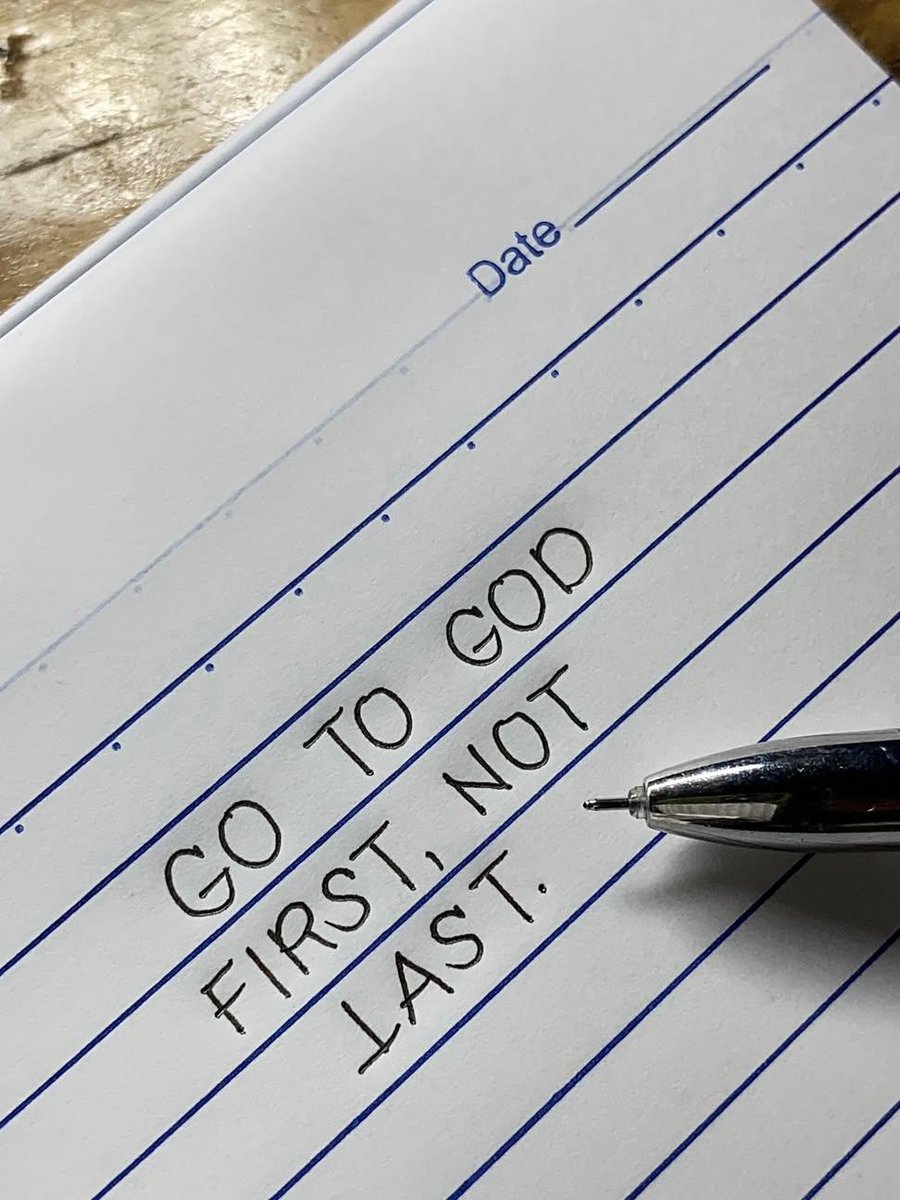 Date
GO TO GOD
FIRST, NOT
LAST.